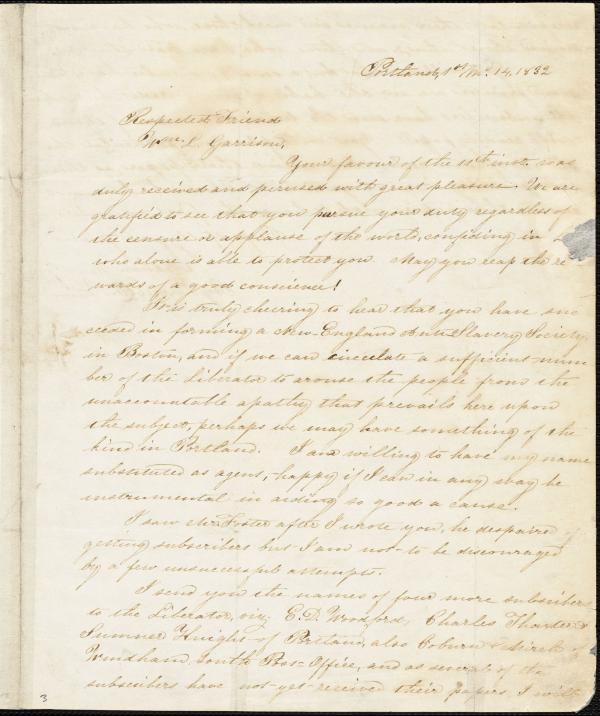 Portland, 1st Mo. 14, 1832
Respected Friend
Wm. L. Garrison,
Your favour of the 11th inst. was
duly received and perused with great pleasure. We are
gratified to see that you pursue your duty regardless of
the censure or applause of the world, confiding in
who alone is able to protect you. May you reap the re
wards of a good conscience!
It is truly cheering to hear that you have suc
ceeded in forming a New-England Anti Slavery Society
in Boston, and if we can circulate a sufficient num
ber of the Liberator to arouse the people from the
unaccountable apathy that prevails here upon
the subject, perhaps we may have something of the
kind in Portland. I am willing to have my name
substituted as agent,-happy if I can in any way be
instrumental in aiding so good a cause.
I saw Mr. Foster after I wrote you, he despaired of
getting subscribers but I am not to be discouraged
by a few unsuccessful attempts.
I send you the names of four more subscribers
to the Liberator, viz; E. D. Woodford, Charles &
Sumner Knight of Portland, also Coburn & of
Windham South Post-Office, and as several of the
subscribers have not yet received their papers, I will
3